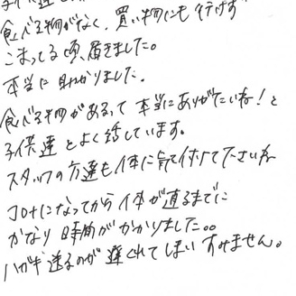 食べる物がなく、買い物にも行けず
こまってる頃、届きました。
本当に助かりました。
食べる物があるって本当にありがたいね！と
子供達とよく話しています。
スタッフの方達も体に気を付けて下さいね
コロナになってから体が直るまでに
かなり時間がかかりました。。
ハガキ送るのが遅くれてしまいすみません。